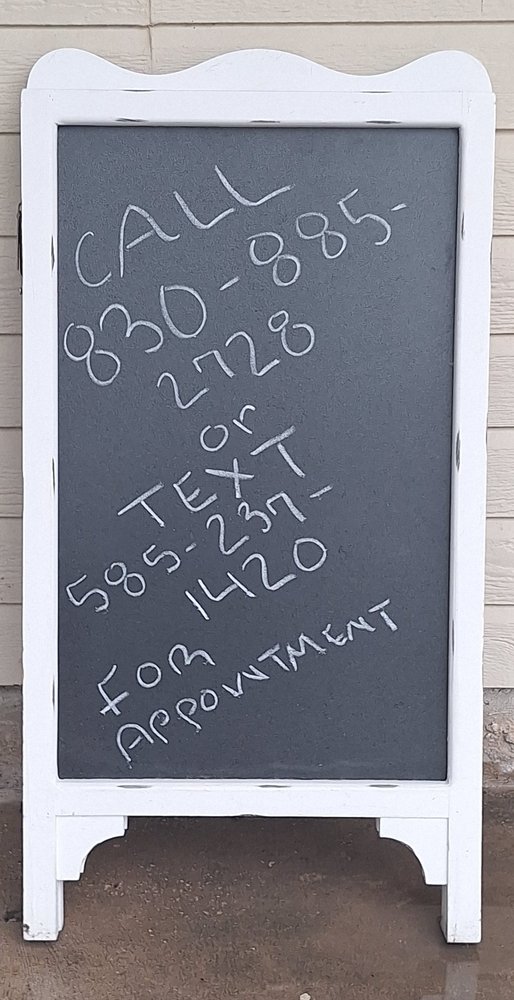 CALL
830-885-
2728
or
TEXT
585-237-
1420
FOR
APPOINTMENT